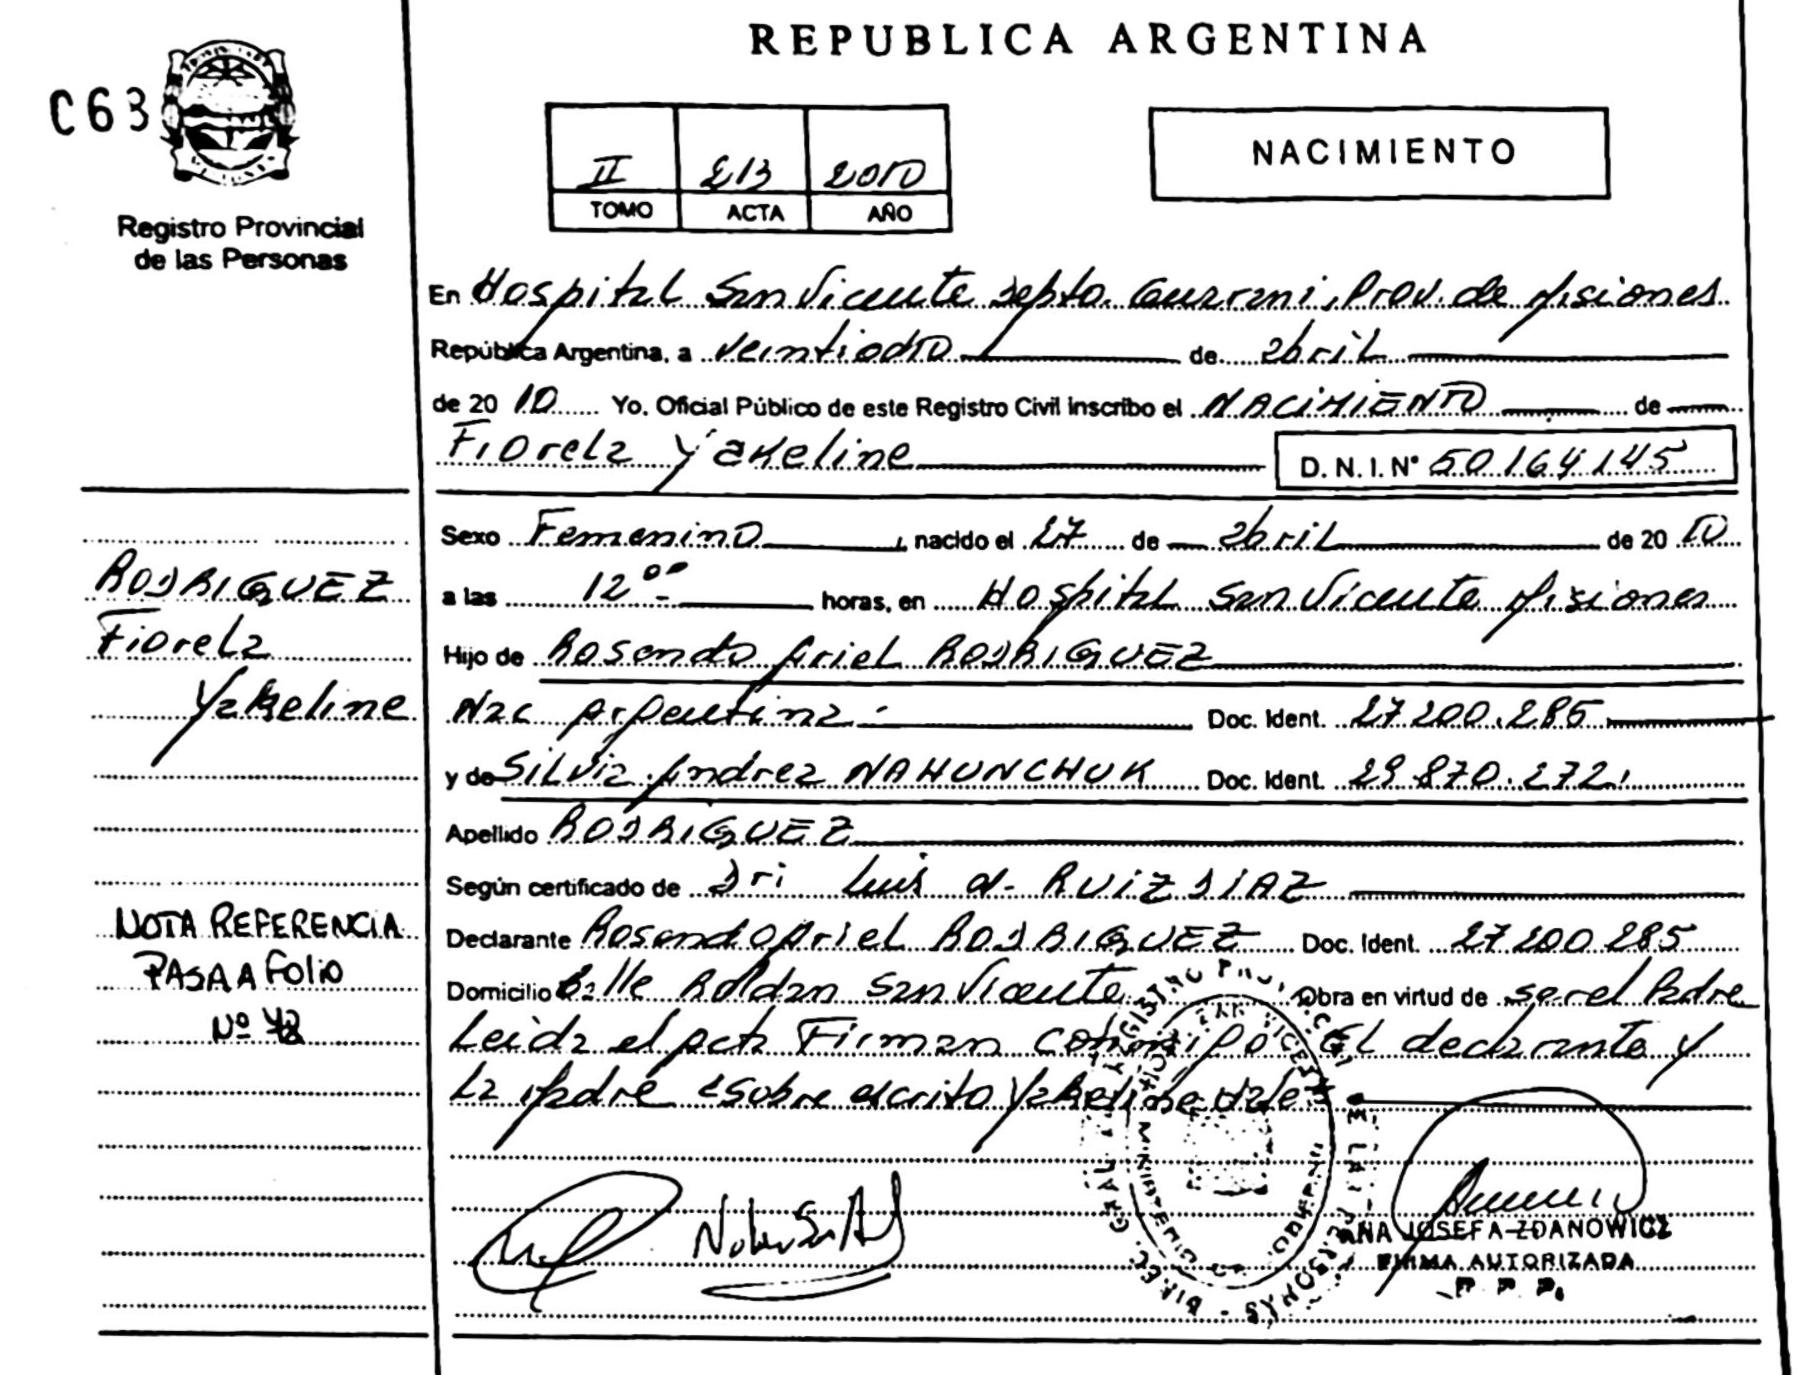 REPUBLICA ARGENTINA
C63
Registro Provincial
de las Personas
II 213 2010
TOMO ACTA AÑO
NACIMIENTO
En Hospital San Vicente Depto. Guarani, Prov. de Misiones
República Argentina, a veintiocho de abril
de 2010 Yo, Oficial Público de este Registro Civil inscribo el NACIMIENTO de
Fiorela Yakeline D.N.I. Nº 50.164.145
Sexo Femenino, nacido el 27 de abril de 2010
a las 12 00 horas, en Hospital San Vicente Misiones
Hijo de Rosendo Ariel RODRIGUEZ
Nac Argentina.- Doc. Ident. 27.200.285
y de Silvia Andrea NAHUNCHUK Doc. Ident. 29.870.272
Apellido RODRIGUEZ
Según certificado de Dr: Luis A. RUIZ DIAZ
Declarante Rosendo Ariel RODRIGUEZ Doc. Ident. 27200285
Domicilio Bº lle Roldan San Vicente Obra en virtud de ser el Padre
Leida el acta Firman conmigo El declarante y
la Madre sobre escrito Yakeline vale
RODRIGUEZ
Fiorela
Yakeline
NOTA REFERENCIA
PASA A FOLIO
Nº
DIREC. GRAL. REGISTRO PROVINCIAL DE LAS PERSONAS
MINISTERIO DE GOBIERNO
ANA JOSEFA ZDANOWICZ
FIRMA AUTORIZADA